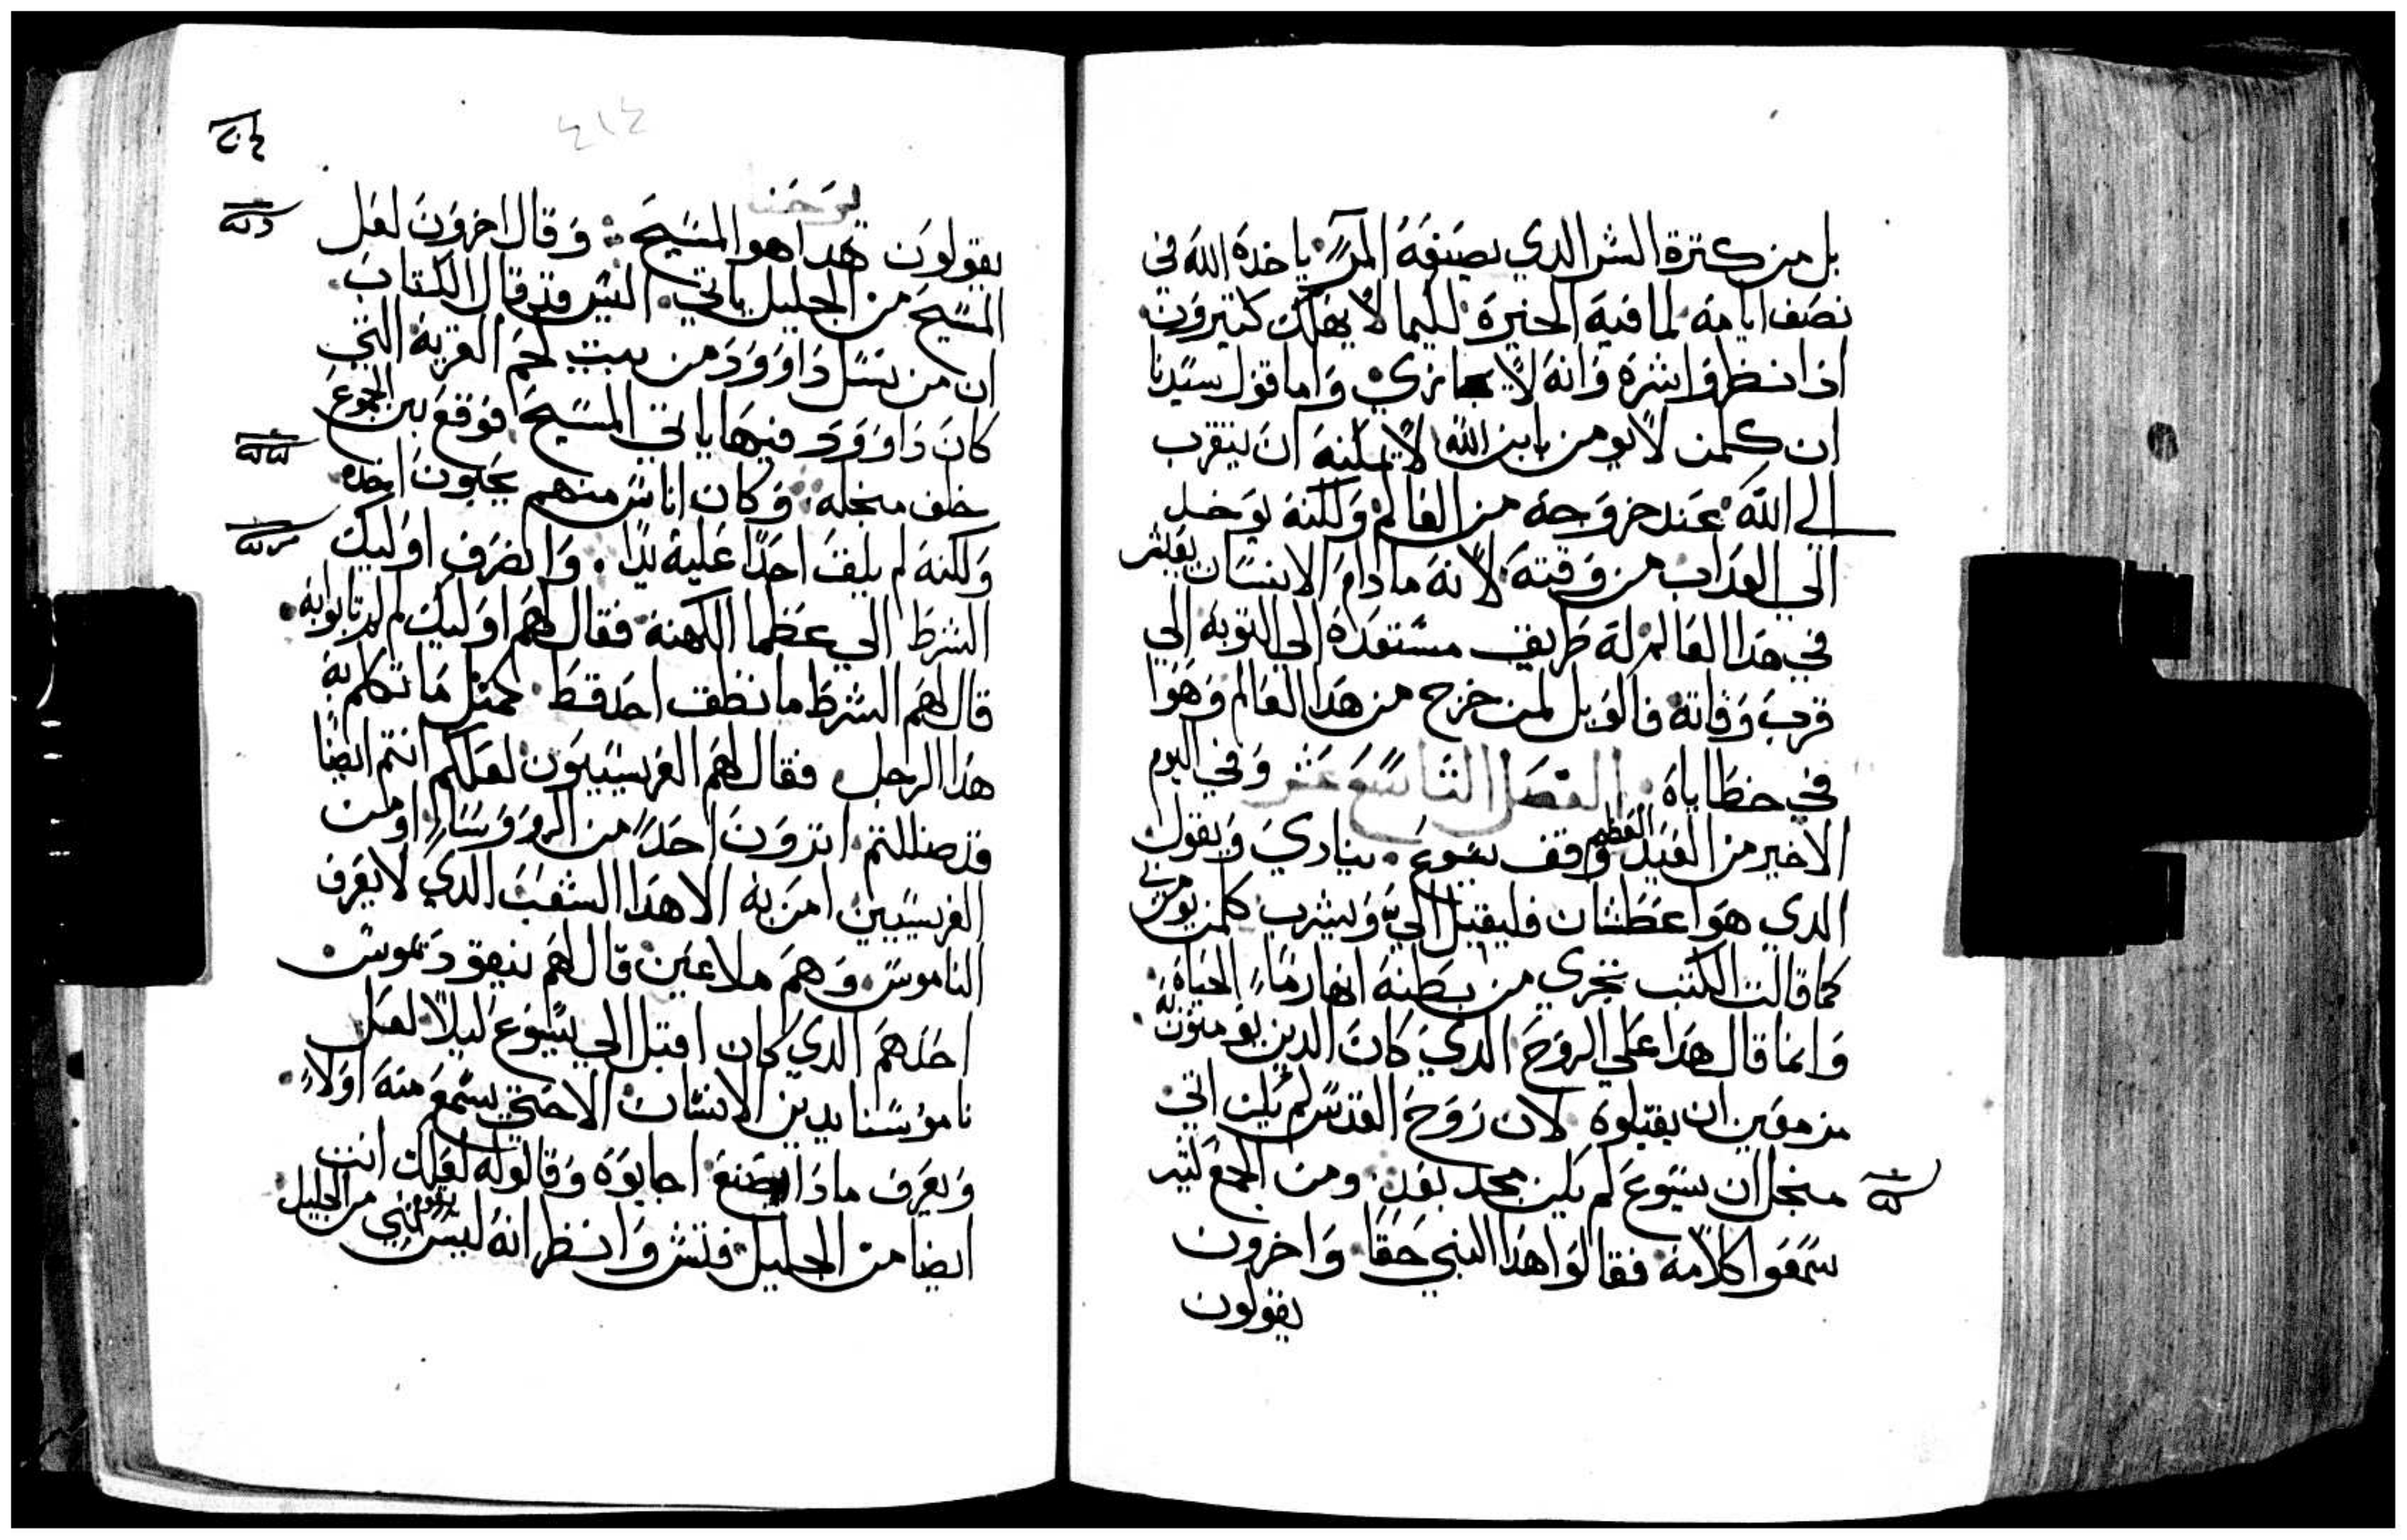 بل من كترة الشر الدي يصنعه المرء ياخده الله في
نصف ايامه لما فيه الخيرة لكيما لا يهلك كتيرون
ادا نظروا شره وانه لا يجازي واما قول سيدنا
ان كلمن لا يومن بابن الله لا يمكنه ان يتقرب
الي الله عند خروجه من العالم ولكنه يوخد
الي العداب من وقته لانه مادام الانسان يعيش
في هدا العالم له طريق مستعده الي التوبه الي
قرب وفاته فالويل لمن خرج من هدا العالم وهوا
في خطاياه الفصل التاسع عشر وفي اليوم
الاخير من العيد العظيم وقف يسوع ينادي ويقول
الدي هوا عطشان فليقبل الي ويشرب كلمن يومن بي
كما قالت الكتب تجري من بطنه انهار ماء الحياة
وانما قال هدا علي الروح الدي كان الدين يومنون به
مزمعين ان يقبلوه لان روح القدس لم يكن اتي
منجل ان يسوع لم يكن مجد بعد ومن الجمع لتير
سمعوا كلامه فقالوا هدا النبي حقا واخرون
يقولون
٤١٤
يوحنا
يقولون هدا هو المسيح وقال اخرون لعل
المسيح من الجليل ياتي اليس قد قال الكتاب
ان من نسل داوود من بيت لحم القريه التي
كان داوود فيها ياتي المسيح فوقع بين الجموع
خلف منجله وكان اناس منهم يحبون اخده
ولكنه لم يلقف احدا عليه يدا وانصرف اوليك
الشرط الي عظما الكهنة فقال لهم اوليك لم لم تاتوا به
قال لهم الشرط ما نطق احد قط كمتل ما تكلم به
هدا الرجل فقال لهم الفريسييون لعلكم انتم ايضا
قد ضللتم اترون احدا من الروسا او من
الفريسيين امن به الا هدا الشعب الدي لا يعرف
الناموس وهم ملاعين قال لهم نيقوديموس
احدهم الدي كان اقبل الي يسوع ليلا لعل
ناموسنا يدين الانسان الا حتي يسمع منه اولا
ويعرف مادا يصنع اجابوه وقالوا له لعلك انت
ايضا من الجليل فتش وانظر انه ليس يقوم نبي من الجليل